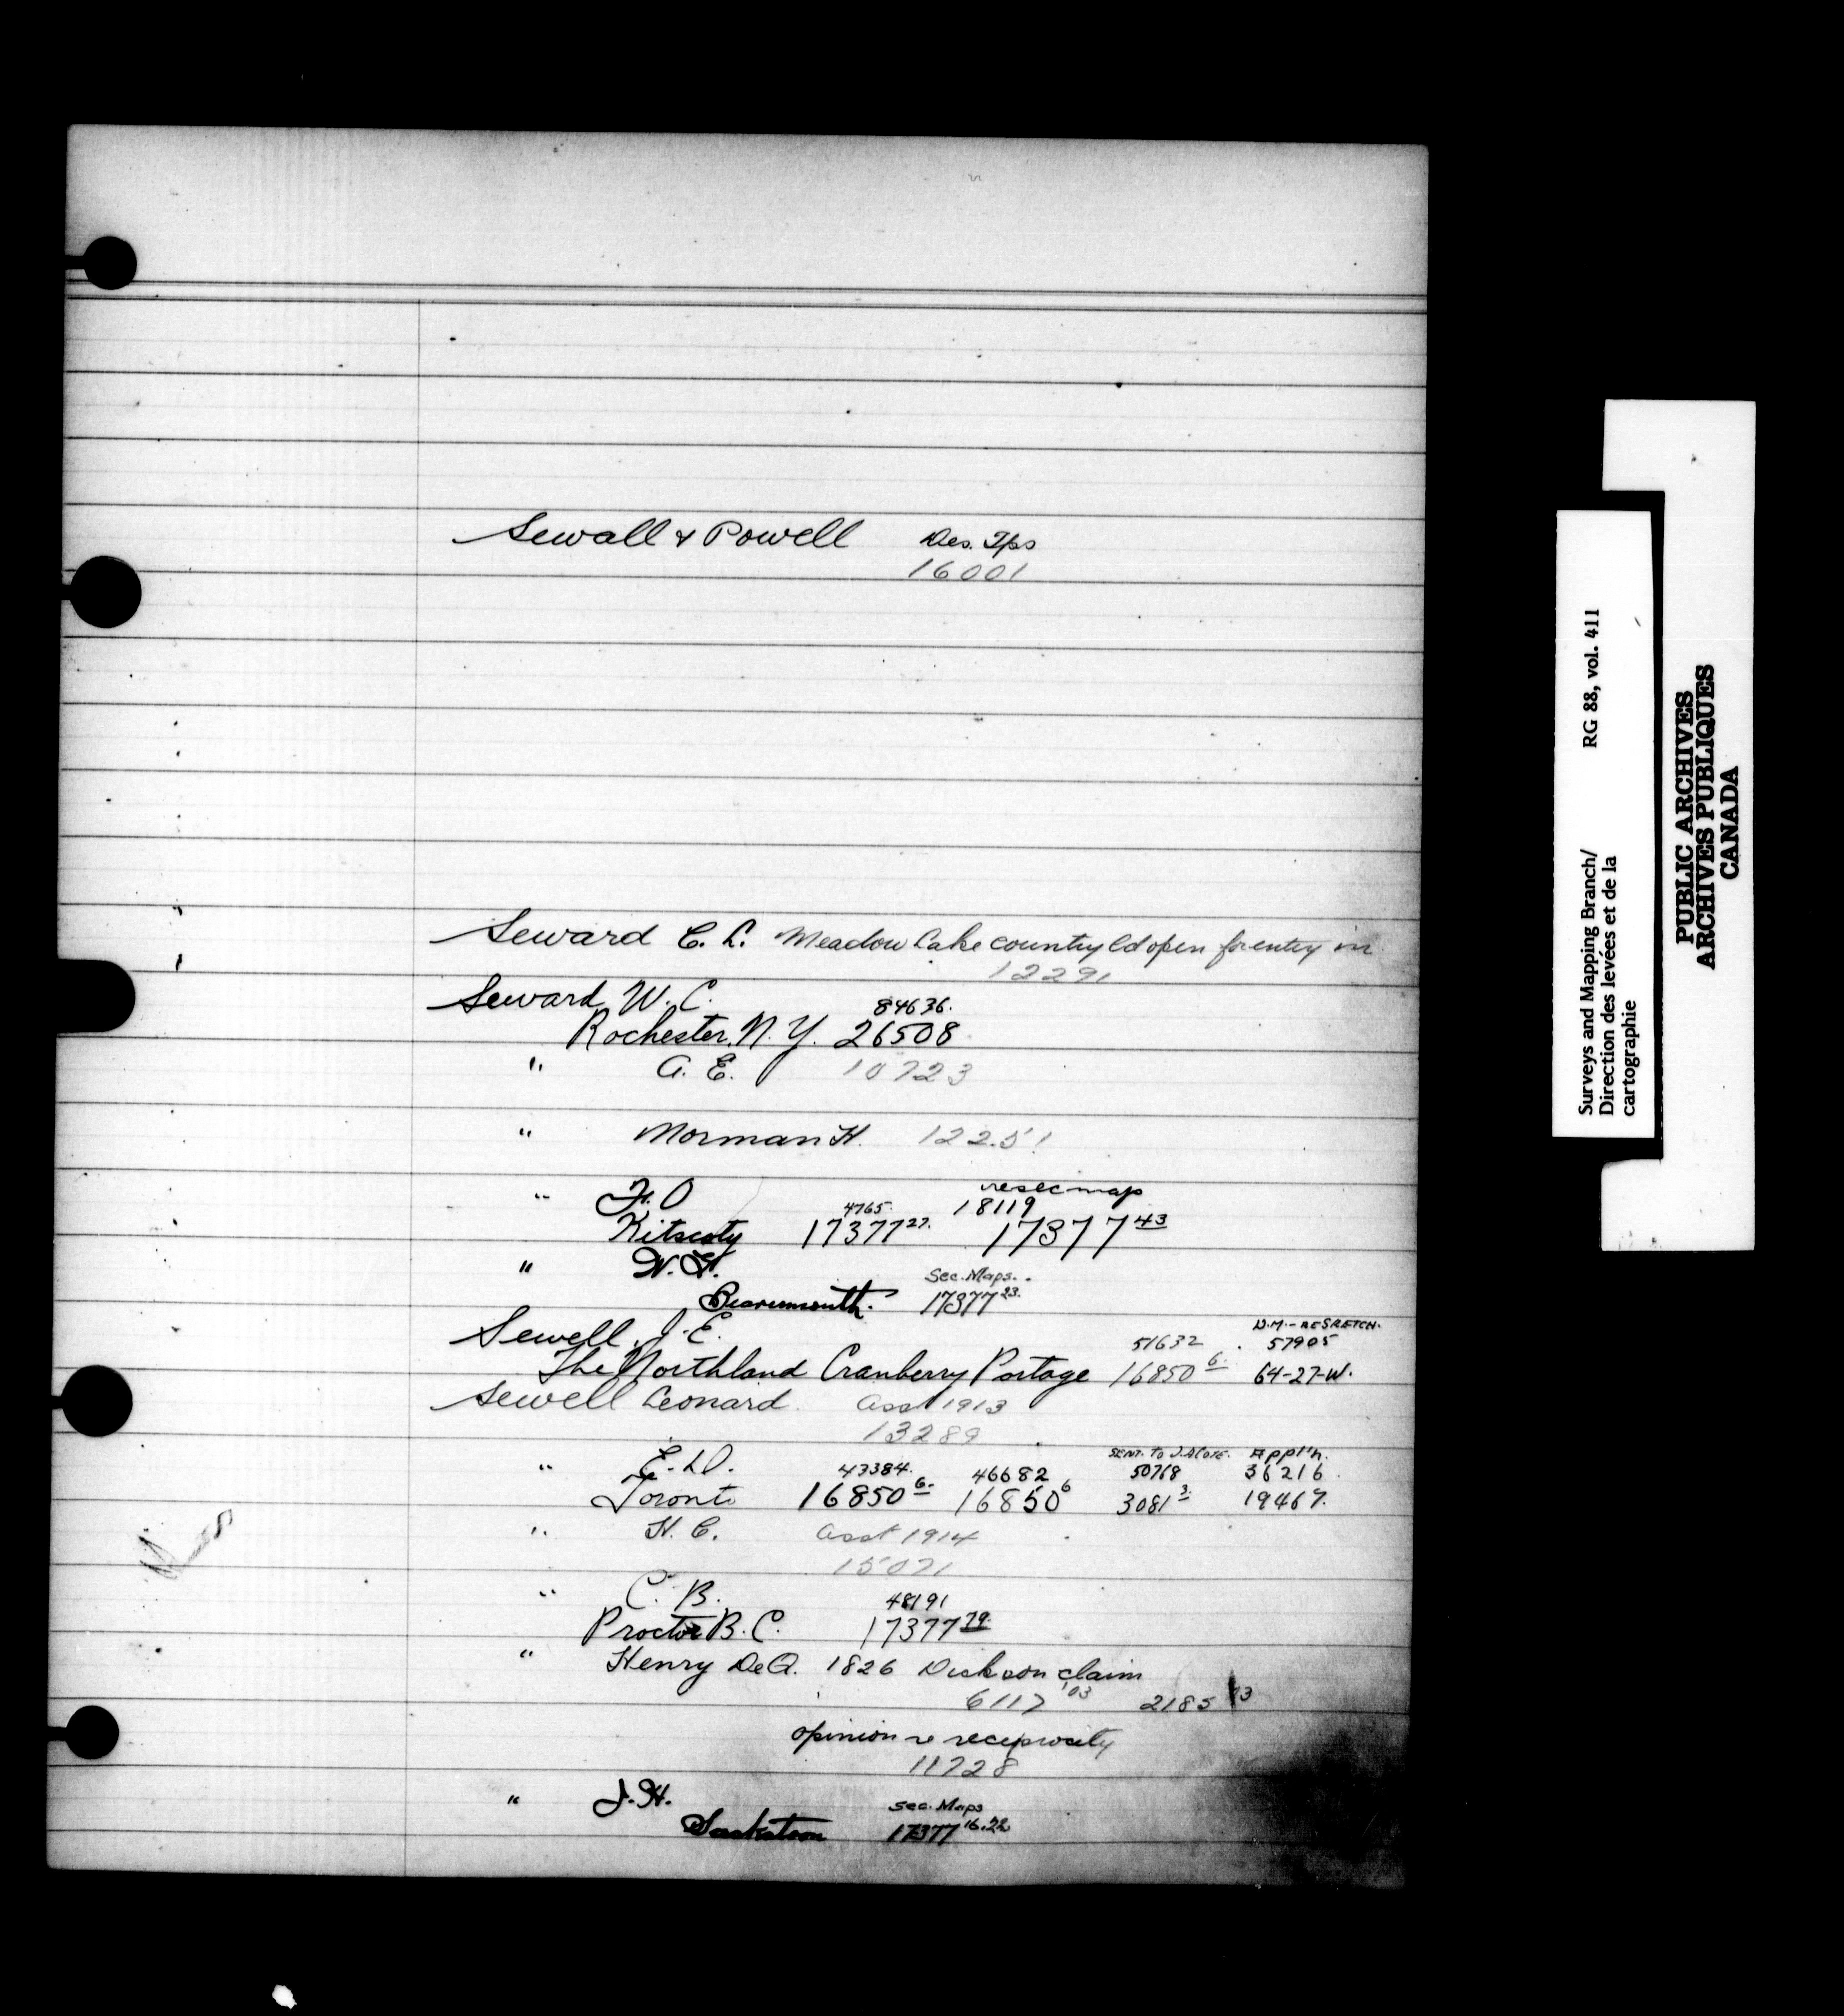 Sewall & Powell Des. Tps
16001
Seward C. L. Meadow Lake country ld open for entry in
12291
Seward W. C. 84636.
Rochester, N. Y. 26508
" A. E. 10723
" Norman H. 12251
" F. O resecmap
4765. 18119
Kitscoty 17377 27. 17377 43
" W. H. Sec. Maps.
17377 23.
Sewell, J. E. 51632 57905
The Northland Cranberry Portage 16850 6. 64-27-W.
Sewell Leonard. Asst 1913
13289
" E. D. SENT. TO Appl'n.
43384. 46682 50768 36216.
Toronto 16850 6. 16850 6 3081 3. 19467.
" H. C. Asst 1914
15071
" C. B. 48191
Procter B. C. 17377 79.
" Henry DeQ. 1826 Dickson claim
6117 '03 2185 13
opinion re reciprocity
11728
" J. H. Sec. Maps
Saskatoon 17377 16.22
Surveys and Mapping Branch/ RG 88, vol. 411
Direction des levées et de la
cartographie
PUBLIC ARCHIVES
ARCHIVES PUBLIQUES
CANADA